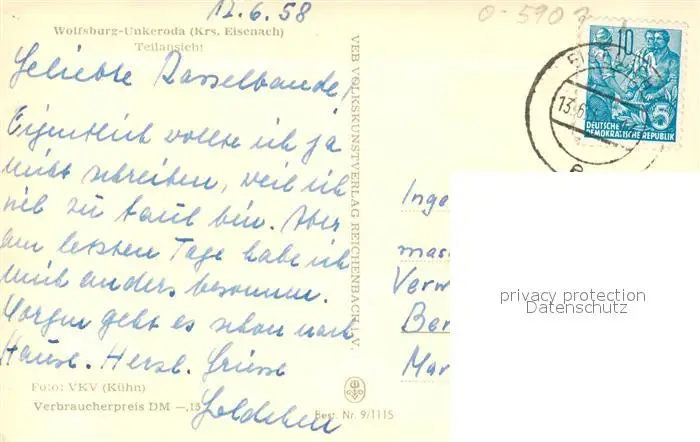 12.6.58
0-590
Wolfsburg-Unkeroda (Krs. Eisenach)
Teilansicht
Geliebte Rasselbande,
Eigentlich wollte ich ja
nicht schreiben, weil ich
viel zu faul bin. Aber
am letzten Tage habe ich
mich anders besonnen.
Morgen geht es schon nach
Hause. Herzl. Grüsse
Foto: VKV (Kühn)
Verbraucherpreis DM —.15
VEB VOLKSKUNSTVERLAG REICHENBACH I.V.
Best. Nr. 9/1115
10
5
DEUTSCHE
DEMOKRATISCHE REPUBLIK
13.6.
Inge
mas
Verw
Ber
Mar
privacy protection
Datenschutz